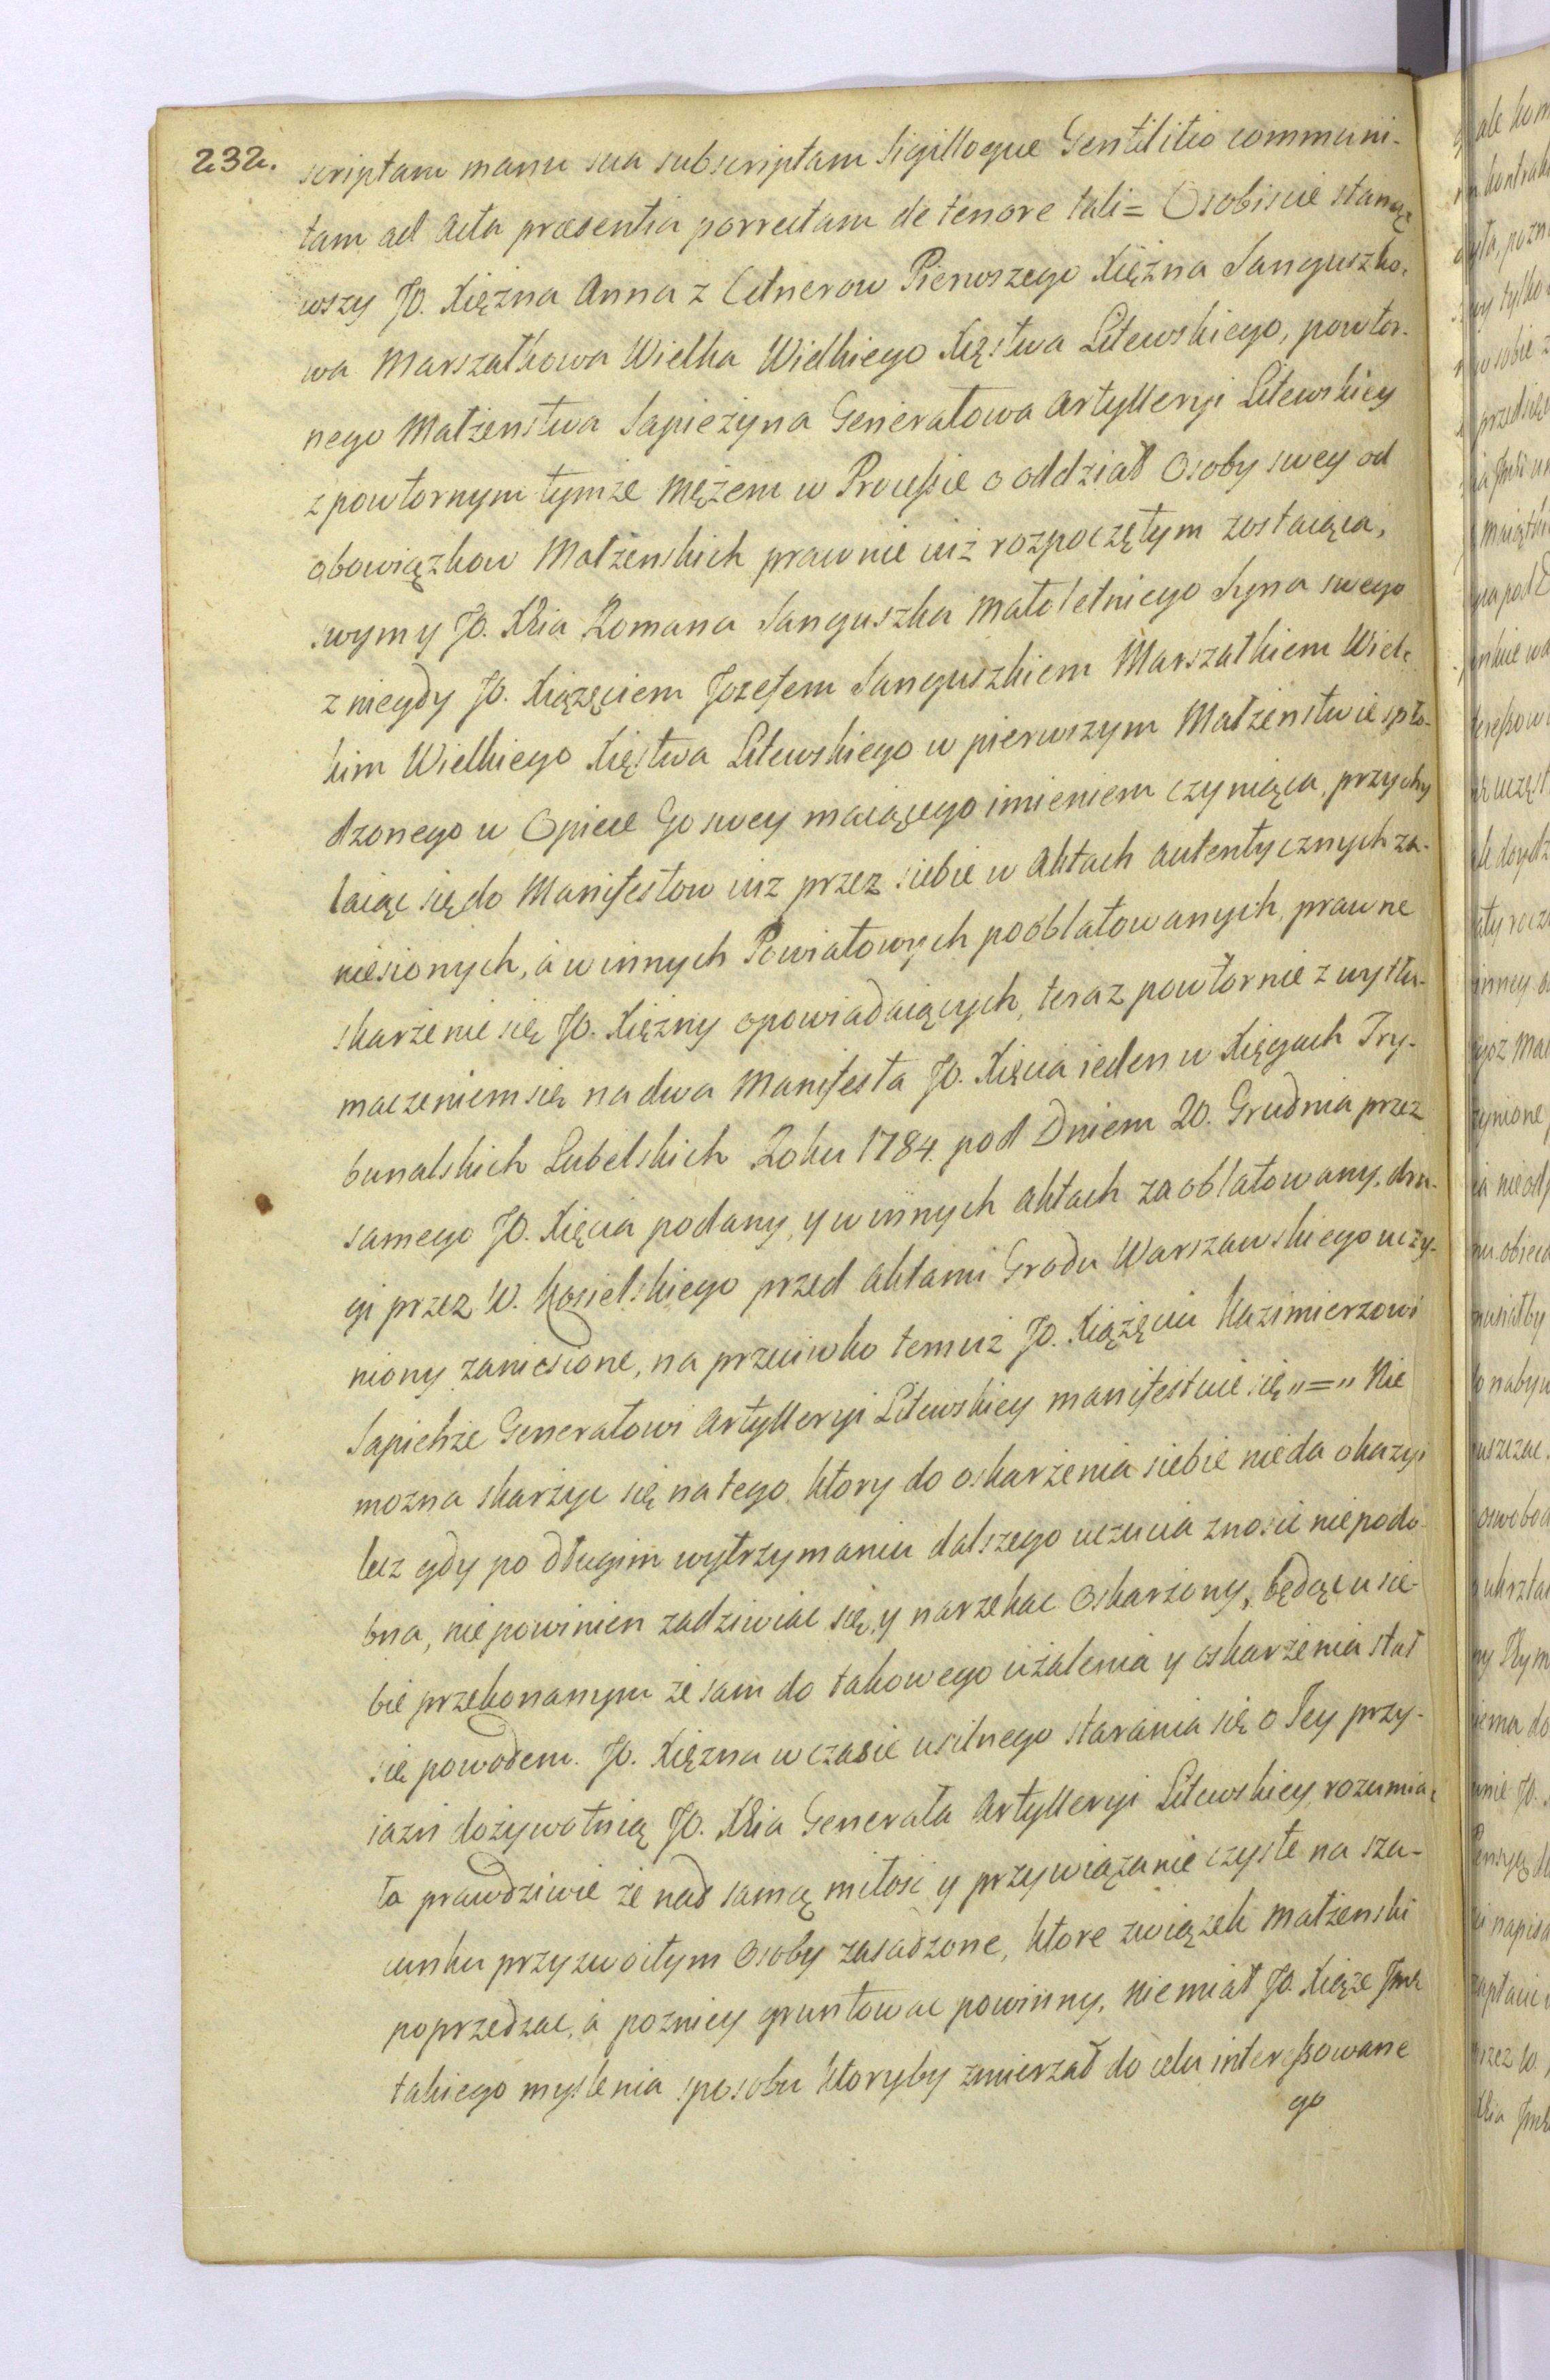 232.
scriptam manu sua subscriptam Sigilloque Gentilitio communi-
tam ad Acta præsentia porrectam de tenore tali = Osobiscie staną
wszy JO. Xiężna Anna z Cetnerow Pierwszego Xiężna Sanguszko-
wa Marszałkowa Wielka Wielkiego Xięstwa Litewskiego, powtor-
nego Małżenstwa Sapieżyna Generałowa Artylleryi Litewskiey
z powtornym tymże Mężem w Processie o oddział Osoby swey od
obowiązkow Małżenskich prawnie iuż rozpoczętym zostaiąca,
swym y JO. Xcia Romana Sanguszka Małoletniego Syna swego
z niegdy JO. Xiążęciem Jozefem Sanguszkiem Marszałkiem Wiel-
kim Wielkiego Xięstwa Litewskiego w pierwszym Małżenstwie spło-
dzonego w Opiece Go swey maiącego imieniem czyniąca, przychy
laiąc się do Manifestow iuż przez siebie w Aktach Autentycznych za-
niesionych, á w innych Powiatowych pooblatowanych, prawne
skarżenie się JO. Xiężny opowiadaiących, teraz powtornie z wytłu-
maczeniem się na dwa Manifesta JO. Xięcia ieden w Xięgach Try-
bunalskich Lubelskich Roku 1784. pod Dniem 20. Grudnia przez
samego JO. Xięcia podany, y w innych Aktach zaoblatowany, dru-
gi przez W. Kosielskiego przed Aktami Grodu Warszawskiego uczy-
niony zaniesione, na przeciwko temuż JO. Xiążęciu Kazimierzowi
Sapieże Generałowi Artylleryi Litewskiey manifestuie się „=„ Nie
mozna skarżyc się na tego, ktory do oskarżenia siebie nie da okazyi
lecz gdy po długim wytrzymaniu dalszego uczucia znosic niepodo-
bna, nie powinien zadziwiac się, y narzekac Oskarżony, będąc u sie-
bie przekonanym że sam do takowego użalenia y oskarżenia stał
się powodem. JO. Xiężna w czasie usilnego starania się o Jey przy-
iazń dożywotnią JO. Xcia Generała Artylleryi Litewskiey, rozumia-
ła prawdziwie że nad samą miłosć y przywiązanie czyste na sza-
cunku przyzwoitym Osoby zasadzone, ktore związek Małżenski
poprzedzac, á pozniey gruntowac powinny, nie miał JO. Xiąże Jmć
takiego myslenia sposobu ktoryby zmierzał do celu interessowane
go